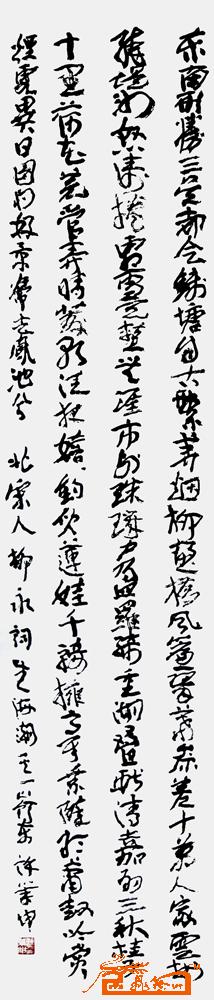 东南形勝三吴都会錢塘自古繁華烟柳畫橋風簾翠幕參差十萬人家雲樹
繞堤沙怒濤捲霜雪天塹無涯市列珠璣户盈羅綺重湖叠巘清嘉有三秋桂子
十里荷花羌管弄晴菱歌泛夜嬉嬉釣叟蓮娃千騎擁高牙乘醉聽簫鼓吟賞
煙霞異日图將好景歸去鳳池夸 北宋人柳永詞 海潮